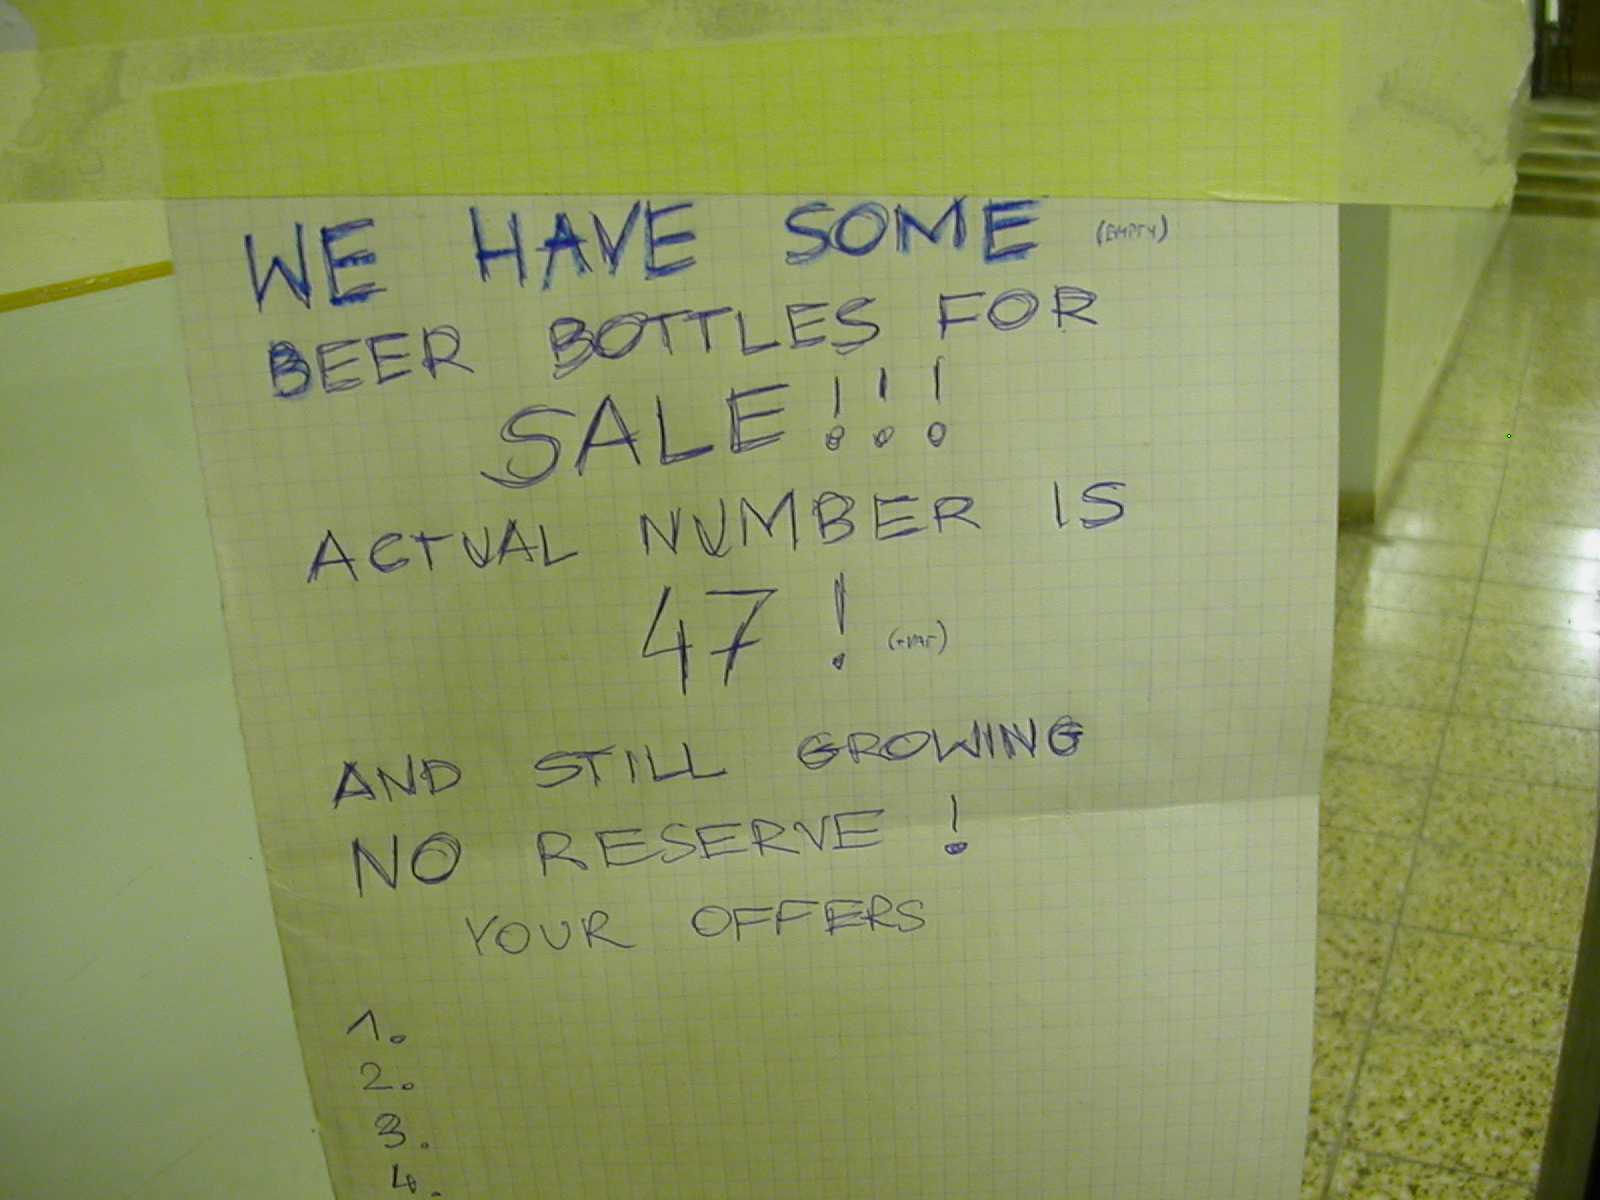 WE HAVE SOME (EMPTY)
BEER BOTTLES FOR
SALE!!!
ACTUAL NUMBER IS
47! (+VAT)
AND STILL GROWING
NO RESERVE!
YOUR OFFERS
1.
2.
3.
4.